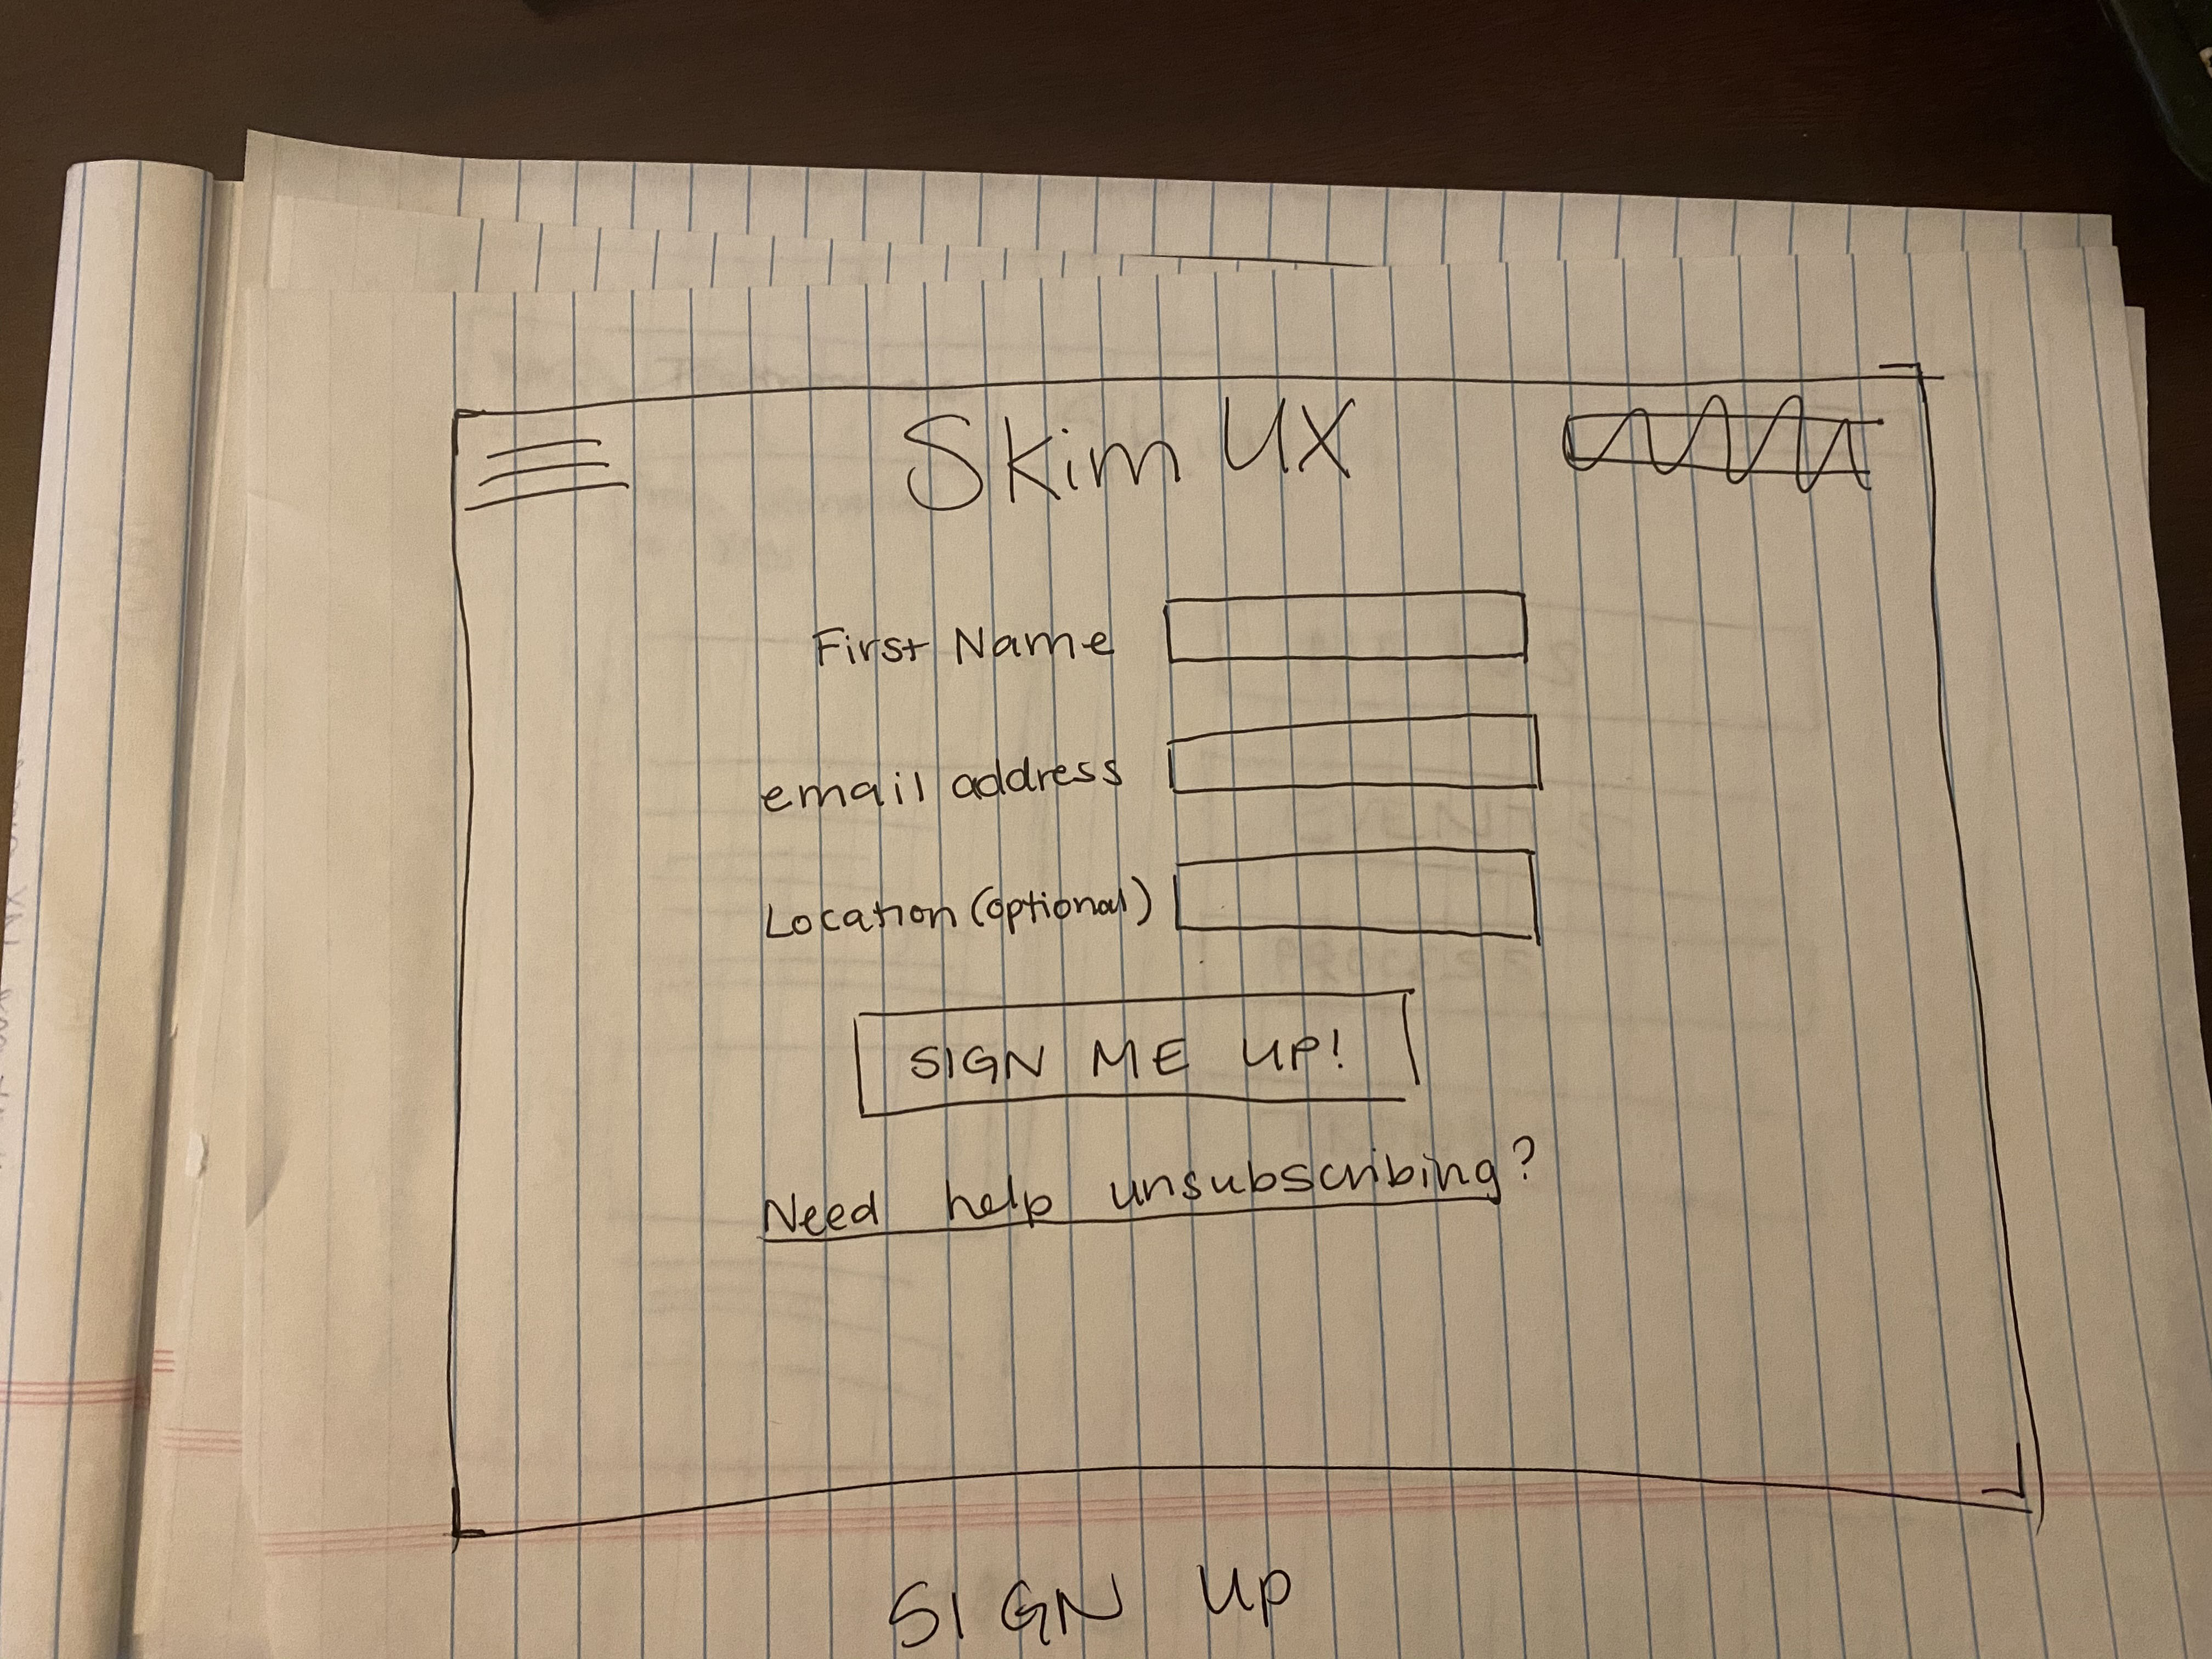 Skim UX
First Name
email address
Location (optional)
SIGN ME UP!
Need help unsubscribing?
SIGN UP